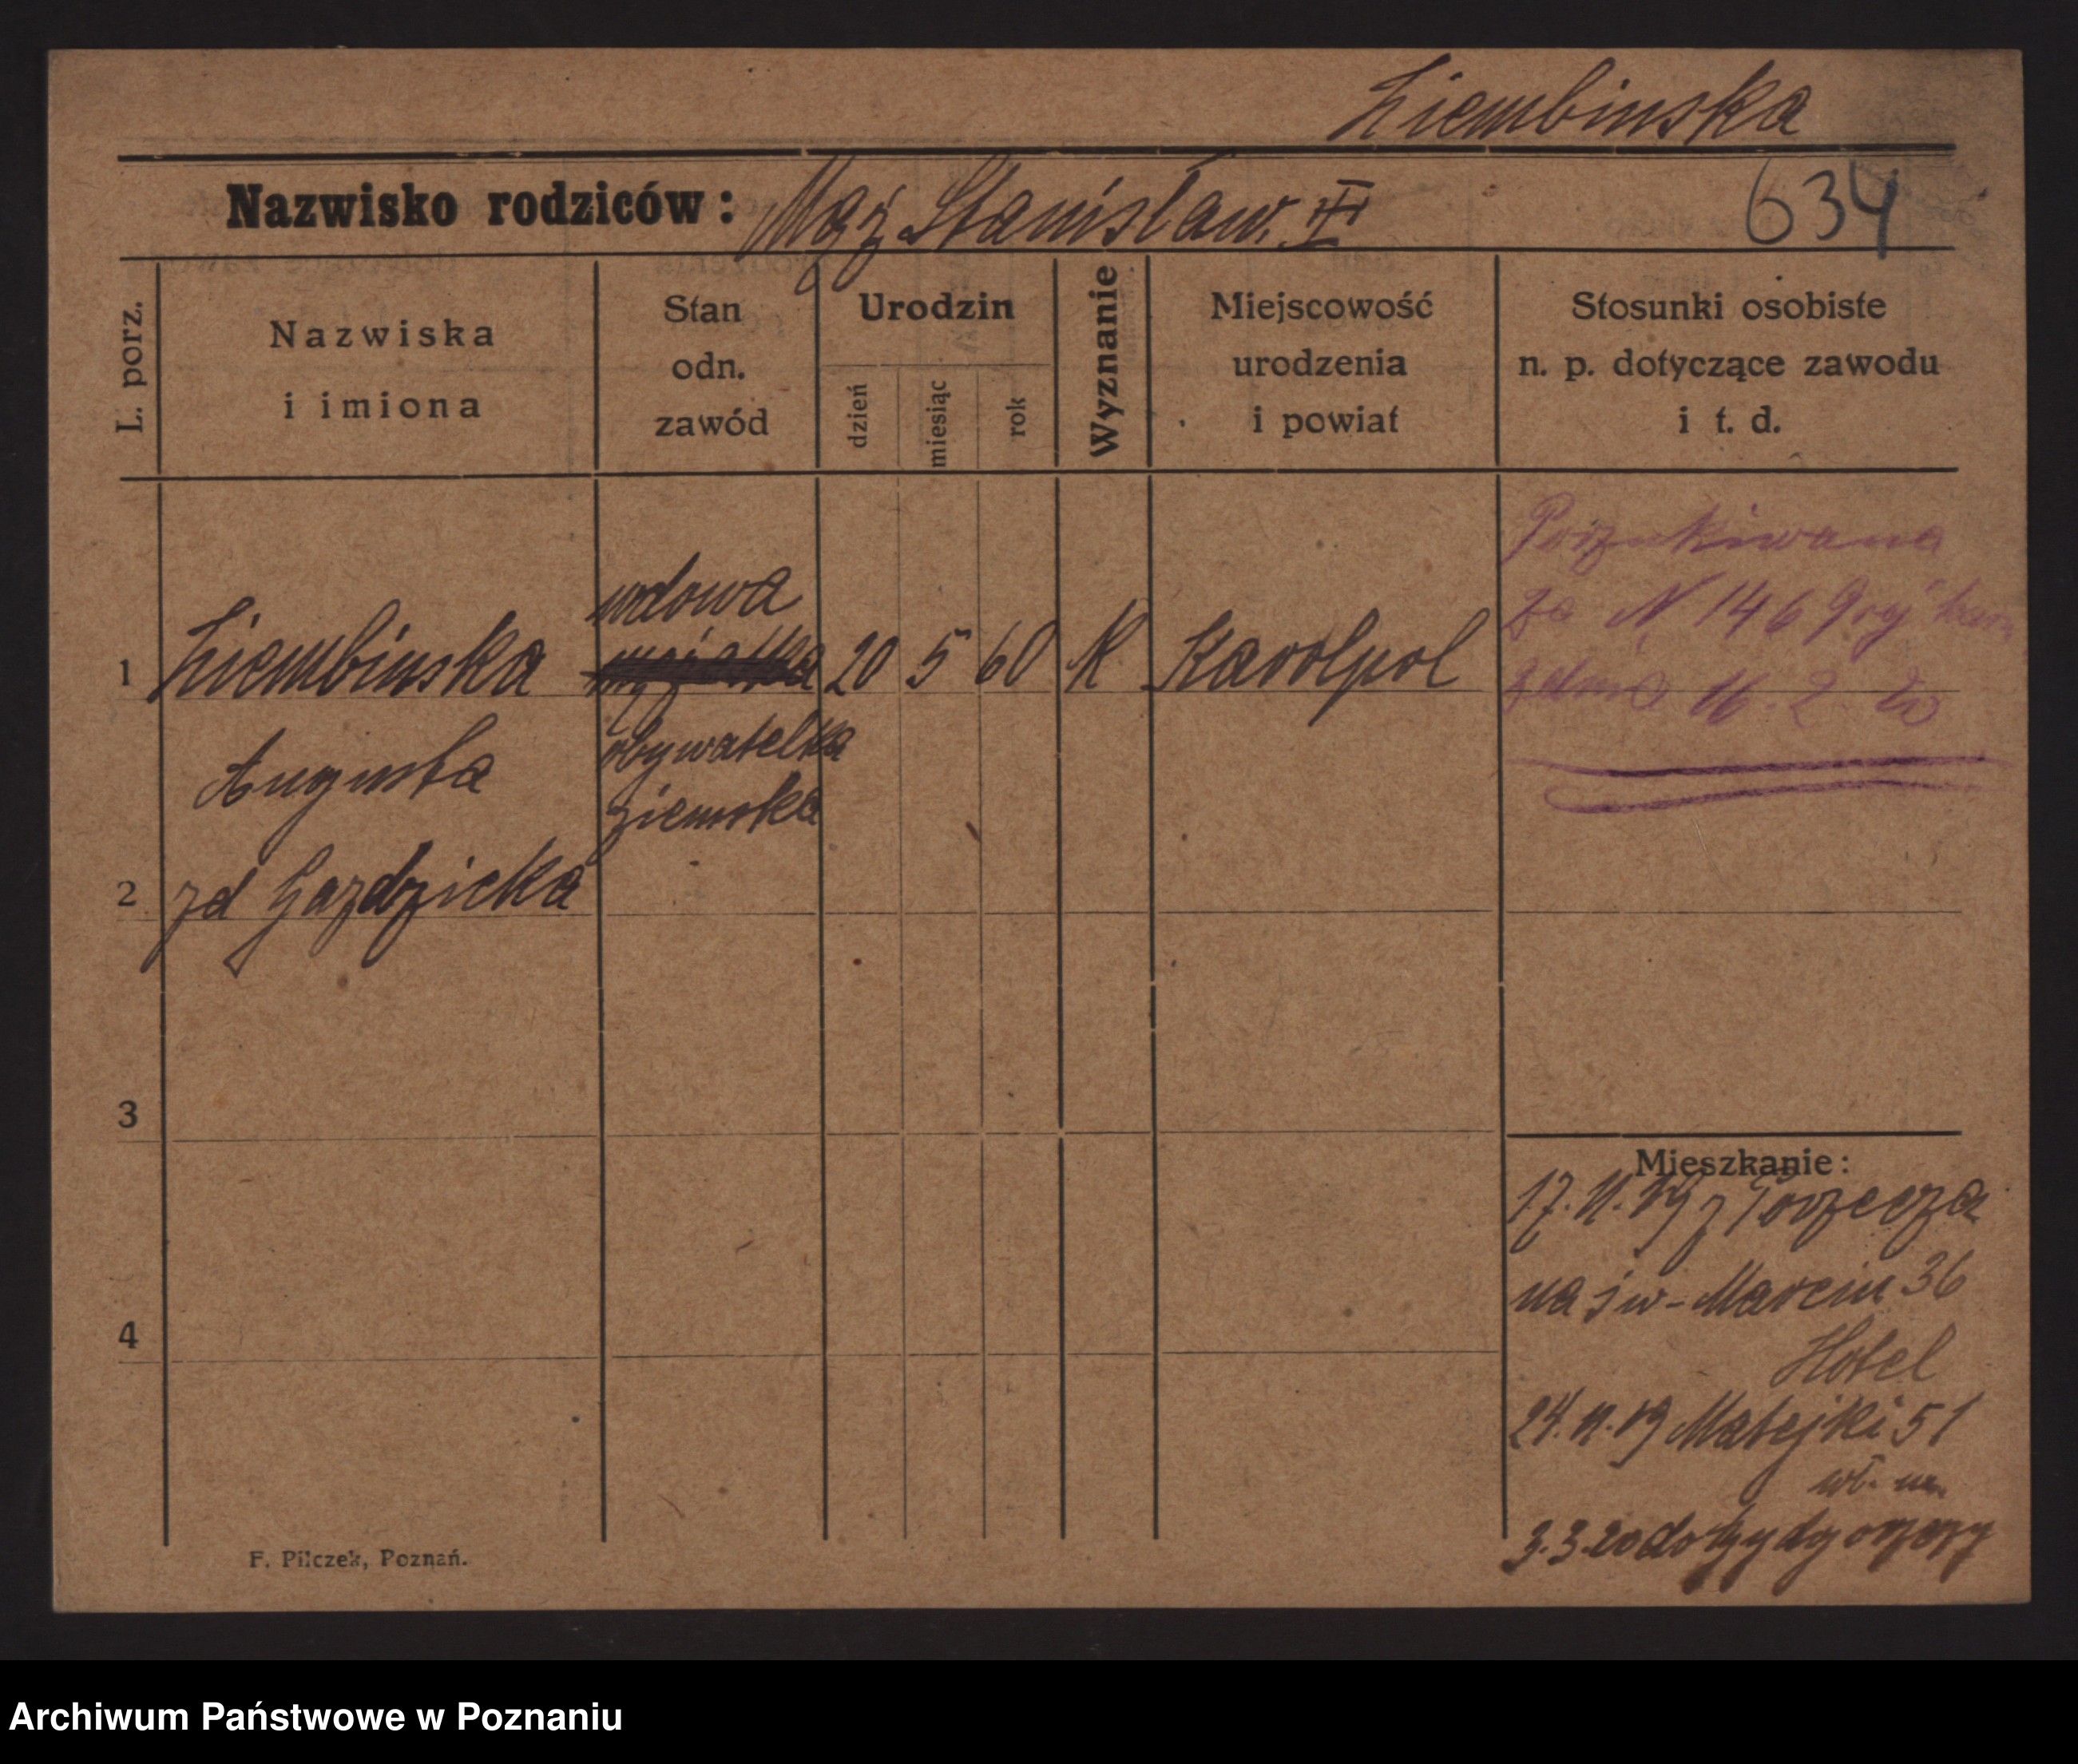 Ziembinska
Nazwisko rodziców: Mąż Stanisław. III
634
L. porz.
Nazwiska
i imiona
Stan
odn.
zawód
Urodzin
dzień
miesiąc
rok
Wyznanie
Miejscowość
urodzenia
i powiat
Stosunki osobiste
n. p. dotyczące zawodu
i t. d.
1
Ziembinska
Augusta
wdowa
obywatelka
ziemska
20 5 60 K Karolpol
Poszukiwana
za N 146
z dnia 16. 2. 20
2
zd Gazdzicka
3
4
Mieszkanie:
17. 11. 19 z
na św- Marcin 36
Hotel
24. 11. 19 Matejki 51
3. 3. 20 do Bydgoszczy
F. Pilczek, Poznań.
Archiwum Państwowe w Poznaniu